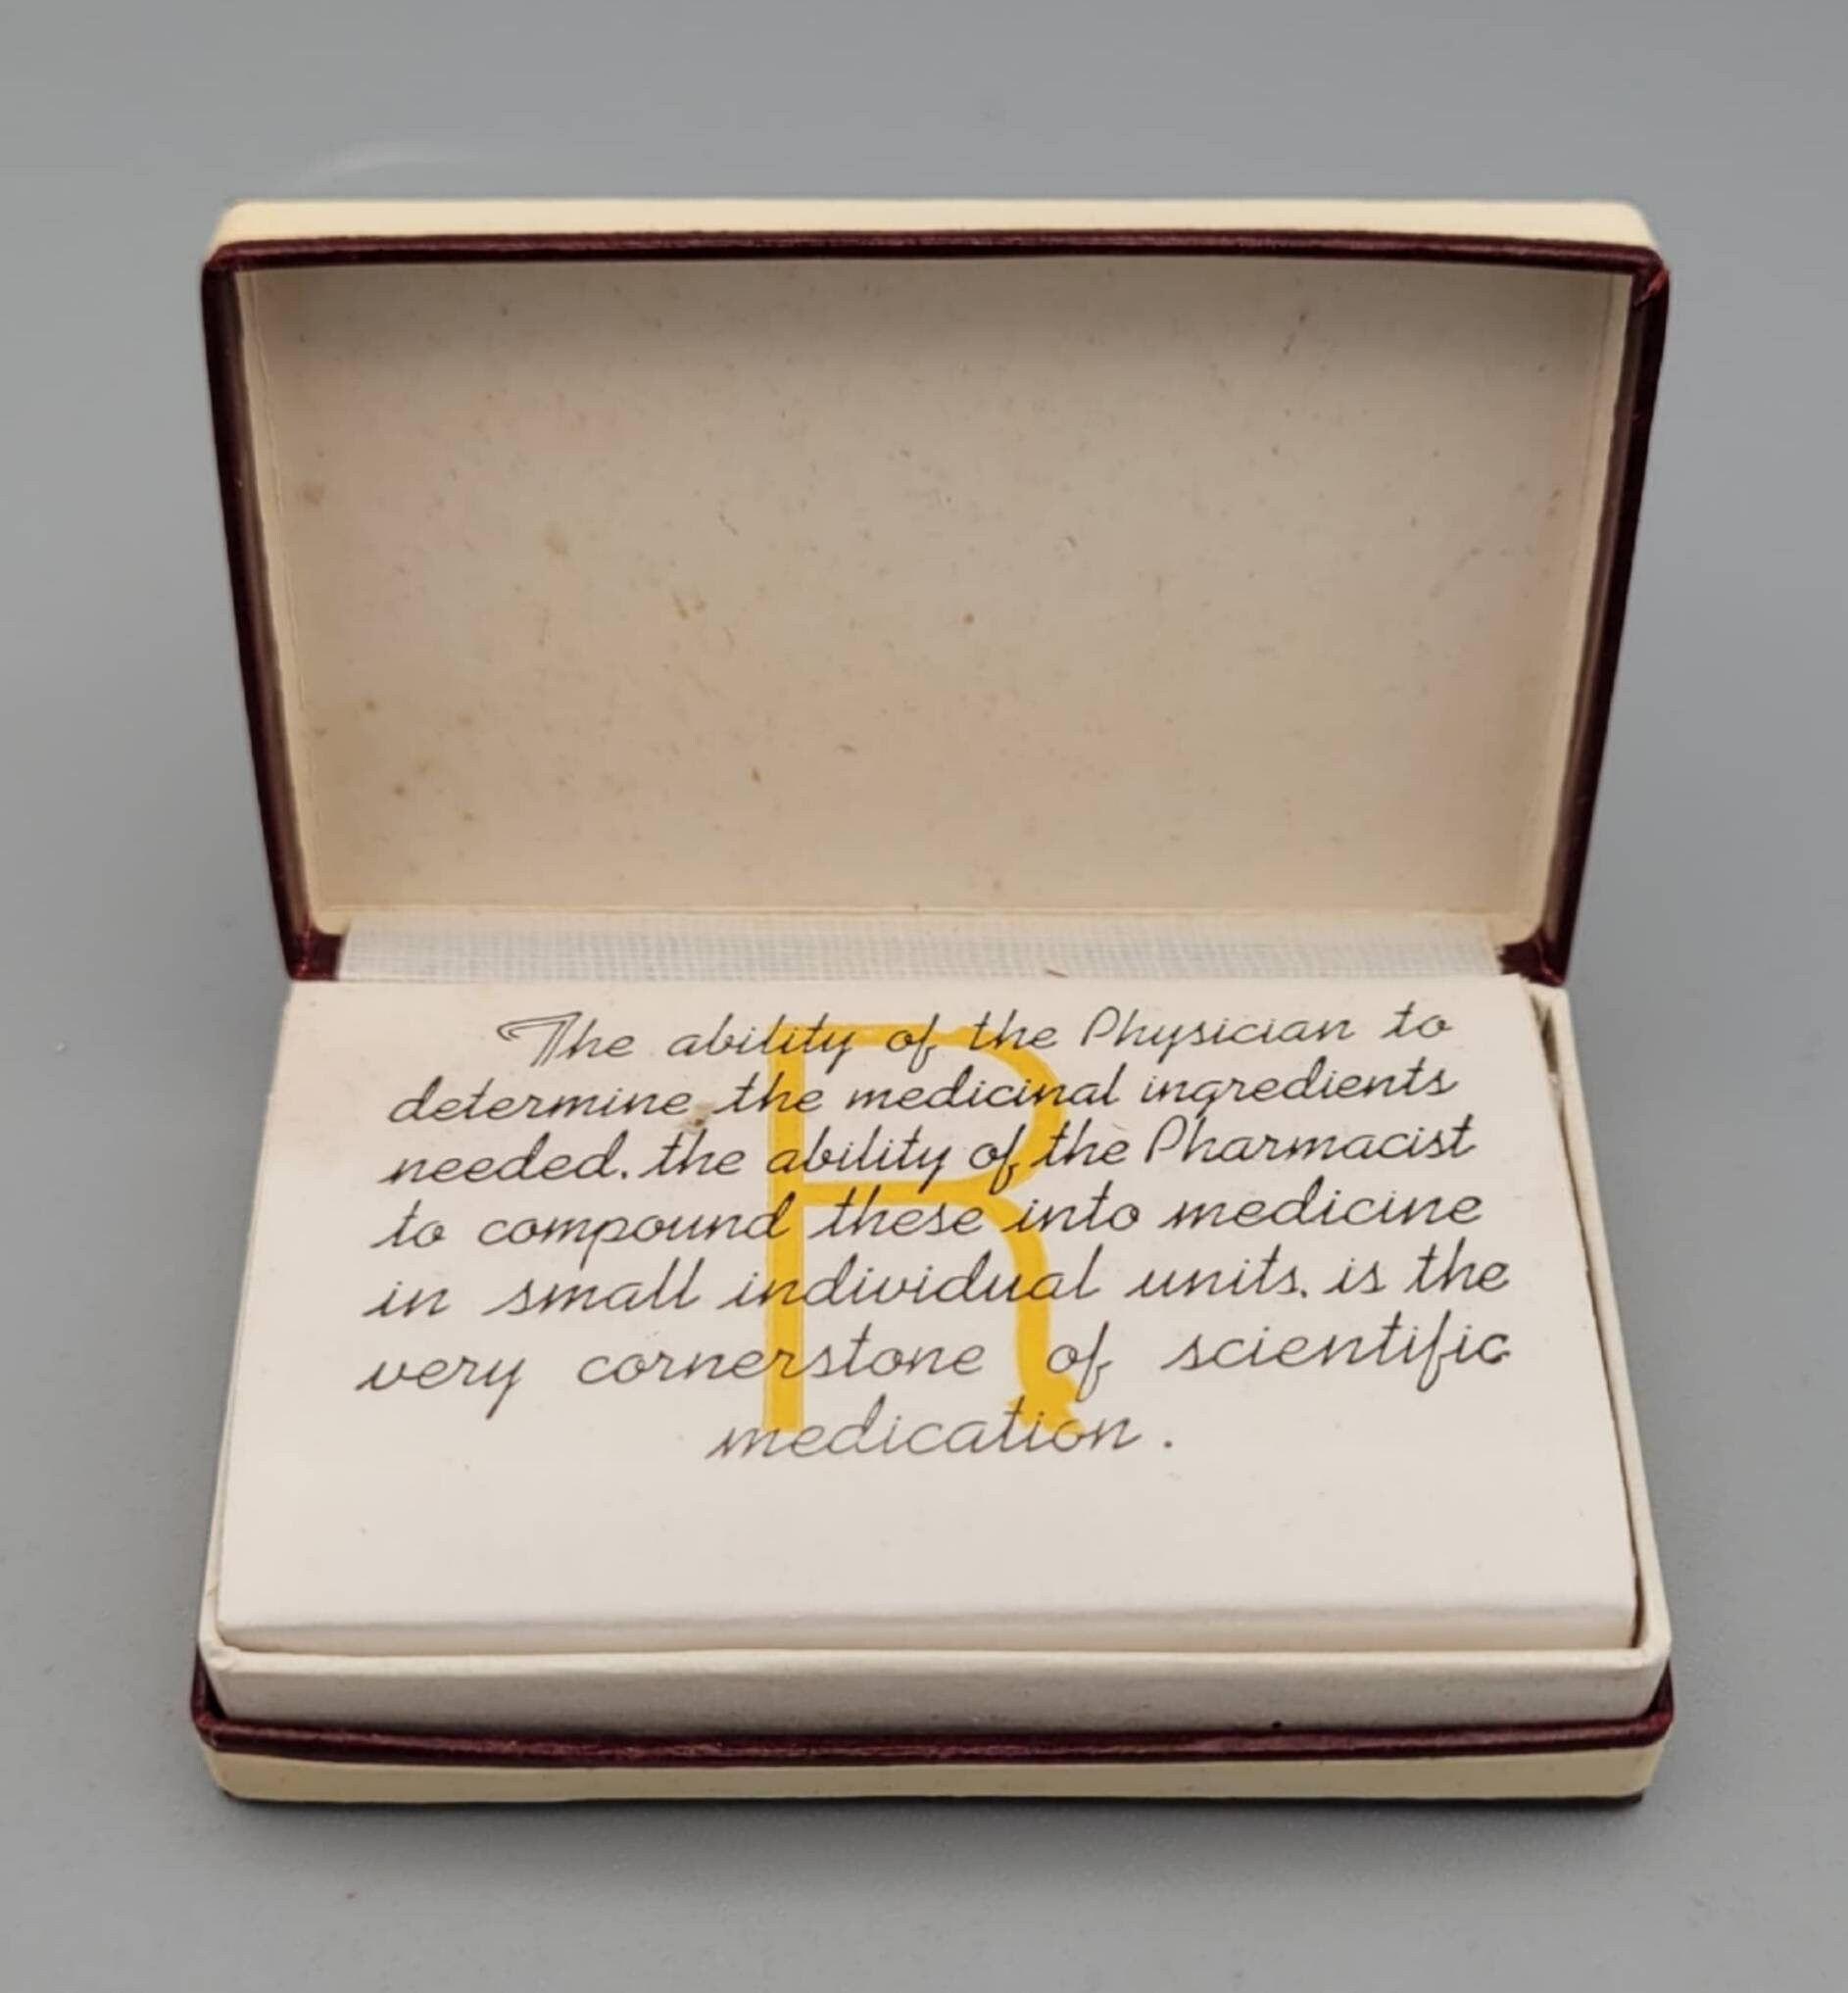 The ability of the Physician to
determine the medicinal ingredients
needed. the ability of the Pharmacist
to compound these into medicine
in small individual units. is the
very cornerstone of scientific
medication.
R